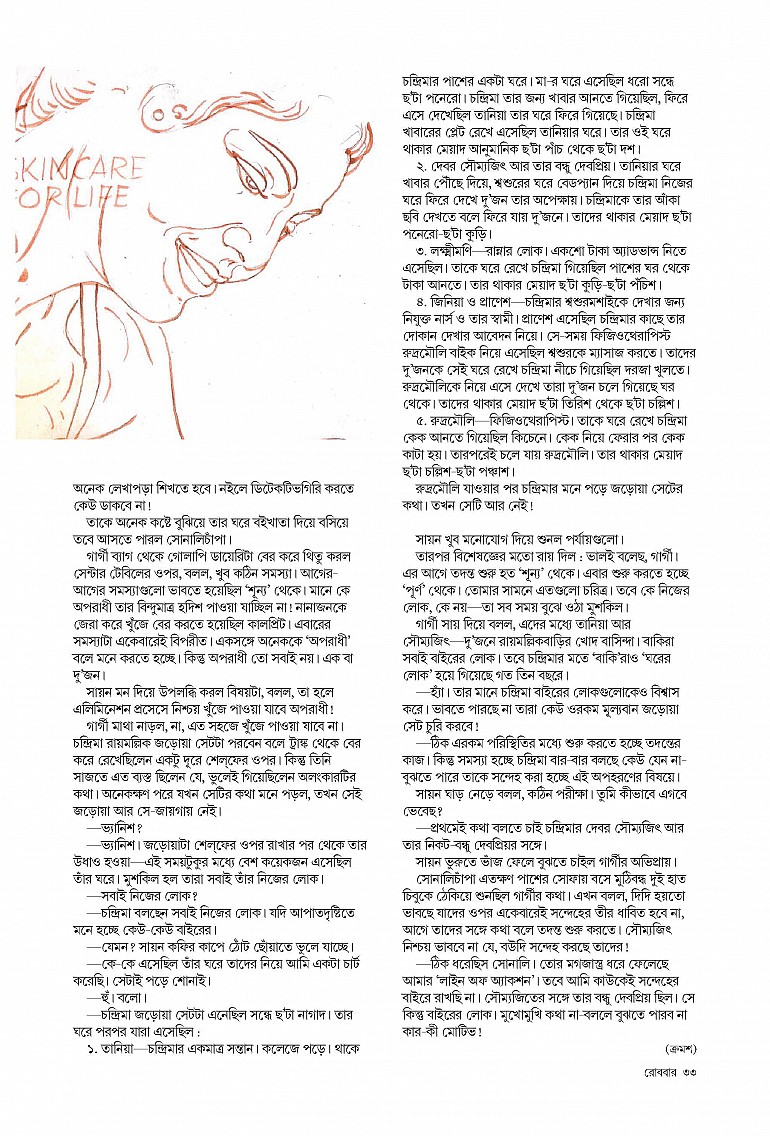 SKIN CARE
FOR LIFE
অনেক লেখাপড়া শিখতে হবে। নইলে ডিটেকটিভগিরি করতে
কেউ ডাকবে না!
তাকে অনেক কষ্টে বুঝিয়ে তার ঘরে বইখাতা দিয়ে বসিয়ে
তবে আসতে পারল সোনালিচাঁপা।
গার্গী ব্যাগ থেকে গোলাপি ডায়েরিটা বের করে থিতু করল
সেন্টার টেবিলের ওপর, বলল, খুব কঠিন সমস্যা। আগের-
আগের সমস্যাগুলো ভাবতে হয়েছিল ‘শূন্য’ থেকে। মানে কে
অপরাধী তার বিন্দুমাত্র হদিশ পাওয়া যাচ্ছিল না! নানাজনকে
জেরা করে খুঁজে বের করতে হয়েছিল কালপ্রিট। এবারের
সমস্যাটা একেবারেই বিপরীত। একসঙ্গে অনেককে ‘অপরাধী’
বলে মনে করতে হচ্ছে। কিন্তু অপরাধী তো সবাই নয়। এক বা
দু’জন।
সায়ন মন দিয়ে উপলব্ধি করল বিষয়টা, বলল, তা হলে
এলিমিনেশন প্রসেসে নিশ্চয় খুঁজে পাওয়া যাবে অপরাধী!
গার্গী মাথা নাড়ল, না, এত সহজে খুঁজে পাওয়া যাবে না।
চন্দ্রিমা রায়মল্লিক জড়োয়া সেটটা পরবেন বলে ট্রাঙ্ক থেকে বের
করে রেখেছিলেন একটু দূরে শেল্‌ফের ওপর। কিন্তু তিনি
সাজতে এত ব্যস্ত ছিলেন যে, ভুলেই গিয়েছিলেন অলংকারটির
কথা। অনেকক্ষণ পরে যখন সেটির কথা মনে পড়ল, তখন সেই
জড়োয়া আর সে-জায়গায় নেই।
—ভ্যানিশ?
—ভ্যানিশ। জড়োয়াটা শেল্‌ফের ওপর রাখার পর থেকে তার
উধাও হওয়া—এই সময়টুকুর মধ্যে বেশ কয়েকজন এসেছিল
তাঁর ঘরে। মুশকিল হল তারা সবাই তাঁর নিজের লোক।
—সবাই নিজের লোক?
—চন্দ্রিমা বলছেন সবাই নিজের লোক। যদি আপাতদৃষ্টিতে
মনে হচ্ছে কেউ-কেউ বাইরের।
—যেমন? সায়ন কফির কাপে ঠোঁট ছোঁয়াতে ভুলে যাচ্ছে।
—কে-কে এসেছিল তাঁর ঘরে তাদের নিয়ে আমি একটা চার্ট
করেছি। সেটাই পড়ে শোনাই।
—হুঁ। বলো।
—চন্দ্রিমা জড়োয়া সেটটা এনেছিল সন্ধে ছ’টা নাগাদ। তার
ঘরে পরপর যারা এসেছিল :
১. তানিয়া—চন্দ্রিমার একমাত্র সন্তান। কলেজে পড়ে। থাকে
চন্দ্রিমার পাশের একটা ঘরে। মা-র ঘরে এসেছিল ধরো সন্ধে
ছ’টা পনেরো। চন্দ্রিমা তার জন্য খাবার আনতে গিয়েছিল, ফিরে
এসে দেখেছিল তানিয়া তার ঘরে ফিরে গিয়েছে। চন্দ্রিমা
খাবারের প্লেট রেখে এসেছিল তানিয়ার ঘরে। তার ওই ঘরে
থাকার মেয়াদ আনুমানিক ছ’টা পাঁচ থেকে ছ’টা দশ।
২. দেবর সৌম্যজিৎ আর তার বন্ধু দেবপ্রিয়। তানিয়ার ঘরে
খাবার পৌঁছে দিয়ে, শ্বশুরের ঘরে বেডপ্যান দিয়ে চন্দ্রিমা নিজের
ঘরে ফিরে দেখে দু’জন তার অপেক্ষায়। চন্দ্রিমাকে তার আঁকা
ছবি দেখতে বলে ফিরে যায় দু’জনে। তাদের থাকার মেয়াদ ছ’টা
পনেরো-ছ’টা কুড়ি।
৩. লক্ষ্মীমণি—রান্নার লোক। একশো টাকা অ্যাডভান্স নিতে
এসেছিল। তাকে ঘরে রেখে চন্দ্রিমা গিয়েছিল পাশের ঘর থেকে
টাকা আনতে। তার থাকার মেয়াদ ছ’টা কুড়ি-ছ’টা পঁচিশ।
৪. জিনিয়া ও প্রাণেশ—চন্দ্রিমার শ্বশুরমশাইকে দেখার জন্য
নিযুক্ত নার্স ও তার স্বামী। প্রাণেশ এসেছিল চন্দ্রিমার কাছে তার
দোকান দেখার আবেদন নিয়ে। সে-সময় ফিজিওথেরাপিস্ট
রুদ্রমৌলি বাইক নিয়ে এসেছিল শ্বশুরকে ম্যাসাজ করতে। তাদের
দু’জনকে সেই ঘরে রেখে চন্দ্রিমা নীচে গিয়েছিল দরজা খুলতে।
রুদ্রমৌলিকে নিয়ে এসে দেখে তারা দু’জন চলে গিয়েছে ঘর
থেকে। তাদের থাকার মেয়াদ ছ’টা তিরিশ থেকে ছ’টা চল্লিশ।
৫. রুদ্রমৌলি—ফিজিওথেরাপিস্ট। তাকে ঘরে রেখে চন্দ্রিমা
কেক আনতে গিয়েছিল কিচেনে। কেক নিয়ে ফেরার পর কেক
কাটা হয়। তারপরেই চলে যায় রুদ্রমৌলি। তার থাকার মেয়াদ
ছ’টা চল্লিশ-ছ’টা পঞ্চাশ।
রুদ্রমৌলি যাওয়ার পর চন্দ্রিমার মনে পড়ে জড়োয়া সেটের
কথা। তখন সেটি আর নেই!
সায়ন খুব মনোযোগ দিয়ে শুনল পর্যায়গুলো।
তারপর বিশেষজ্ঞের মতো রায় দিল : ভালই বলেছ, গার্গী।
এর আগে তদন্ত শুরু হত ‘শূন্য’ থেকে। এবার শুরু করতে হচ্ছে
‘পূর্ণ’ থেকে। তোমার সামনে এতগুলো চরিত্র। তবে কে নিজের
লোক, কে নয়—তা সব সময় বুঝে ওঠা মুশকিল।
গার্গী সায় দিয়ে বলল, এদের মধ্যে তানিয়া আর
সৌম্যজিৎ—দু’জনে রায়মল্লিকবাড়ির খোদ বাসিন্দা। বাকিরা
সবাই বাইরের লোক। তবে চন্দ্রিমার মতে ‘বাকি’রাও ‘ঘরের
লোক’ হয়ে গিয়েছে গত তিন বছরে।
—হ্যাঁ। তার মানে চন্দ্রিমা বাইরের লোকগুলোকেও বিশ্বাস
করে। ভাবতে পারছে না তারা কেউ ওরকম মূল্যবান জড়োয়া
সেট চুরি করবে!
—ঠিক এরকম পরিস্থিতির মধ্যে শুরু করতে হচ্ছে তদন্তের
কাজ। কিন্তু সমস্যা হচ্ছে চন্দ্রিমা বার-বার বলছে কেউ যেন না-
বুঝতে পারে তাকে সন্দেহ করা হচ্ছে এই অপহরণের বিষয়ে।
সায়ন ঘাড় নেড়ে বলল, কঠিন পরীক্ষা। তুমি কীভাবে এগবে
ভেবেছ?
—প্রথমেই কথা বলতে চাই চন্দ্রিমার দেবর সৌম্যজিৎ আর
তার নিকট-বন্ধু দেবপ্রিয়র সঙ্গে।
সায়ন ভুরুতে ভাঁজ ফেলে বুঝতে চাইল গার্গীর অভিপ্রায়।
সোনালিচাঁপা এতক্ষণ পাশের সোফায় বসে মুঠিবন্ধ দুই হাত
চিবুকে ঠেকিয়ে শুনছিল গার্গীর কথা। এখন বলল, দিদি হয়তো
ভাবছে যাদের ওপর একেবারেই সন্দেহের তীর ধাবিত হবে না,
আগে তাদের সঙ্গে কথা বলে তদন্ত শুরু করতে। সৌম্যজিৎ
নিশ্চয় ভাববে না যে, বউদি সন্দেহ করছে তাদের!
—ঠিক ধরেছিস সোনালি। তোর মগজাস্ত্র ধরে ফেলেছে
আমার ‘লাইন অফ অ্যাকশন’। তবে আমি কাউকেই সন্দেহের
বাইরে রাখছি না। সৌম্যজিতের সঙ্গে তার বন্ধু দেবপ্রিয় ছিল। সে
কিন্তু বাইরের লোক। মুখোমুখি কথা না-বললে বুঝতে পারব না
কার-কী মোটিভ!
(ক্রমশ)
রোববার ৩৩